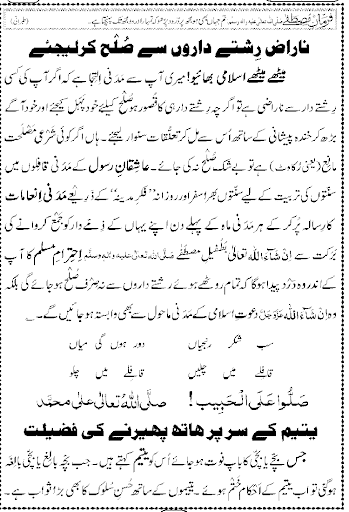 فرمانِ مصطفےٰ صلی اللہ تعالیٰ علیہ والہ وسلم تم جہاں بھی ہو مجھ پر دُرُود پڑھو کہ تمہارا دُرُود مجھ تک پہنچتا ہے۔ (طبرانی)
ناراض رِشتے داروں سے صُلْح کرلیجئے
میٹھے میٹھے اسلامی بھائیو! میری آپ سے مَدَنی التجا ہے کہ اگر آپ کی کسی
رِشتے دار سے ناراضی ہے تو اگرچہ رِشتے دار ہی کا قُصور ہو صُلْح کیلئے خود پہل کیجئے اور خود آگے
بڑھ کر خندہ پیشانی کے ساتھ اُس سے مل کر تعلُّقات سنوار لیجئے۔ ہاں اگر کوئی شَرعی مَصْلَحت
مانِع (یعنی رُکاوٹ) ہے تو بے شک صُلْح نہ کی جائے۔ عاشِقانِ رسول کے مَدَنی قافِلوں میں
سنّتوں کی تربیت کے لیے سنّتوں بھرا سفر اور روزانہ ’’فکرِ مدینہ‘‘ کے ذَرِیعے مَدَنی اِنعامات
کا رسالہ پُر کر کے ہر مَدَنی ماہ کے پہلے دن اپنے یہاں کے ذِمّے دار کو جَمْع کروانے کی
بَرَکت سے اِنْ شَآءَ اللہ تعالیٰ بطفیلِ مصطَفٰے صَلَّی اللہ تعالیٰ علیہ والہٖ وسلَّم اِحترامِ مسلم کا آپ
کے اندر وہ دَرْد پیدا ہو گا کہ تمام روٹھے ہوئے رشتے داروں سے نہ صِرْف صُلْح ہو جائے گی بلکہ
وہ اِنْ شَآءَ اللہ عَزَّوَجَلَّ دعوتِ اسلامی کے مَدَنی ماحول سے بھی وابستہ ہو جائیں گے۔
سب شکر رنجیاں دور ہوں گی میاں
قافلے میں چلیں قافلے میں چلو
صَلُّوا عَلَی الْحَبِیب! صلَّی اللہُ تعالیٰ علیٰ محمَّد
یتیم کے سر پر ہاتھ پھیرنے کی فضیلت
جس بچّے یا بچّی کا باپ فوت ہو جائے اُس کو یتیم کہتے ہیں۔ جب بچّہ بالِغ یا بچّی بالِغہ
ہو گئی تو اب یتیم کے اَحکام خَتْم ہوئے۔ یتیموں کے ساتھ حُسنِ سُلوک کا بھی بڑا ثواب ہے۔